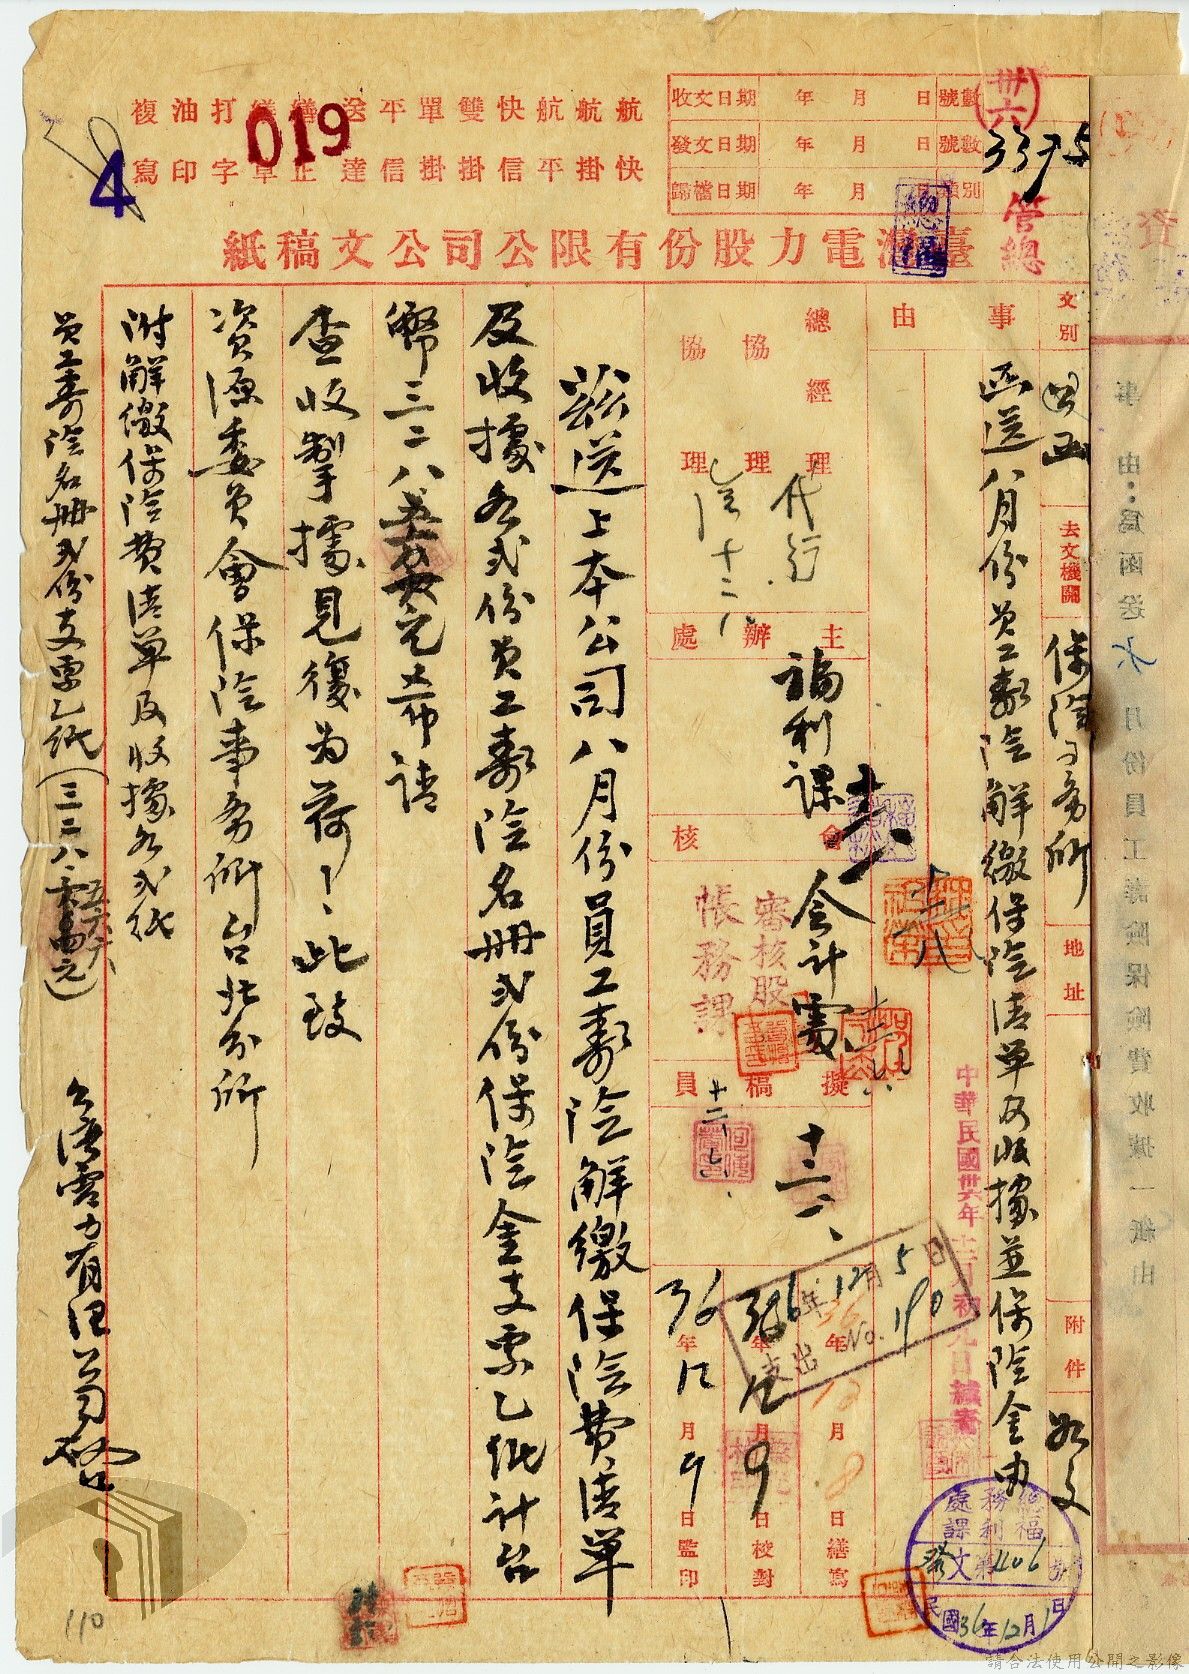 收文日期 年 月 日 號數
發文日期 年 月 日 號數
歸檔日期 年 月 日 類別
卅六
3375
管總
總福
航快
航掛
航平
快信
雙掛
單掛
平信
送達
繕正
繕單
打字
油印
複寫
019
4
臺灣電力股份有限公司公文稿紙
文別
函
去文機關
保險事務所
地址
附件
如文
事由
函送八月份員工壽險解繳保險清單及收據並保險金由
中華民國卅六年十二月初九日繕寫
總經理
協理
協理
代行
十二、八
主辦處
福利課
會核
會計處
審核股
帳務課
擬稿員
十二、
36年12月5日
支出 No. 190
36年12月8日繕寫
36年12月9日校對
36年12月9日監印
茲送上本公司八月份員工壽險解繳保險費清單
及收據各弍份員工壽險名冊弍份保險金支票乙紙計台
幣三二八五六六元正希請
查收掣據見復為荷！此致
資源委員會保險事務所台北分所
附解繳保險費清單及收據各弍紙
員工壽險名冊弍份支票乙紙（三二八五六六元）
台灣電力有限公司啓
總務處福利課
發文第1106號
民國36年12月1日
事由：為函送六月份員工壽險保險費收據一紙由
110
請合法使用公開之影像